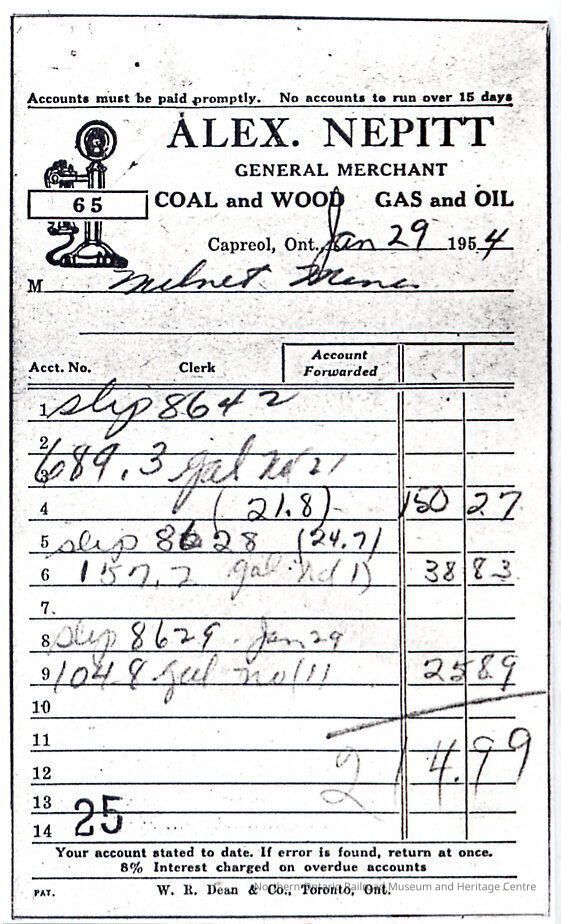 Accounts must be paid promptly. No accounts to run over 15 days
ALEX. NEPITT
GENERAL MERCHANT
65
COAL and WOOD GAS and OIL
Capreol, Ont., Jan 29 1954
M Milnet Mines
Acct. No. Clerk Account Forwarded
1 slip 8642
2
3 689.3 gal No 2
4 (21.8) 150 27
5 slip 8628 (24.7)
6 157.2 gal No 1) 38 83
7.
8 slip 8629 . Jan 29
9 104.8 gal no (1) 25 89
10
11
214.99
12
13
25
14
Your account stated to date. If error is found, return at once.
8% Interest charged on overdue accounts
PAT. W. R. Dean & Co., Toronto, Ont.
Northern Ontario Railroad Museum and Heritage Centre